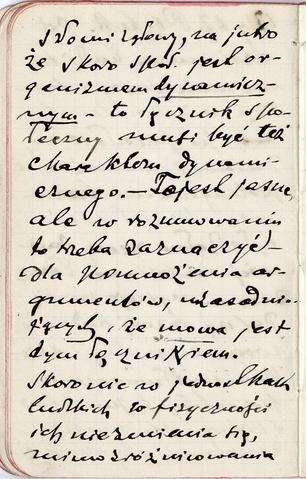 słomi głowy, na jutro
że skoro społ. jest or-
ganizmem dynamicz-
nym - to łącznik spo-
łeczny musi być też
charakteru dynami-
cznego. - To jest jasne,
ale w rozumowaniu
to trzeba zaznaczyć -
dla pomnożenia ar-
gumentów, uzasadnia-
jących, że mowa jest
tym łącznikiem.
Skoro nic w jednostkach
ludzkich w fizyczności
ich nie zmienia się,
mimo zróżnicowania